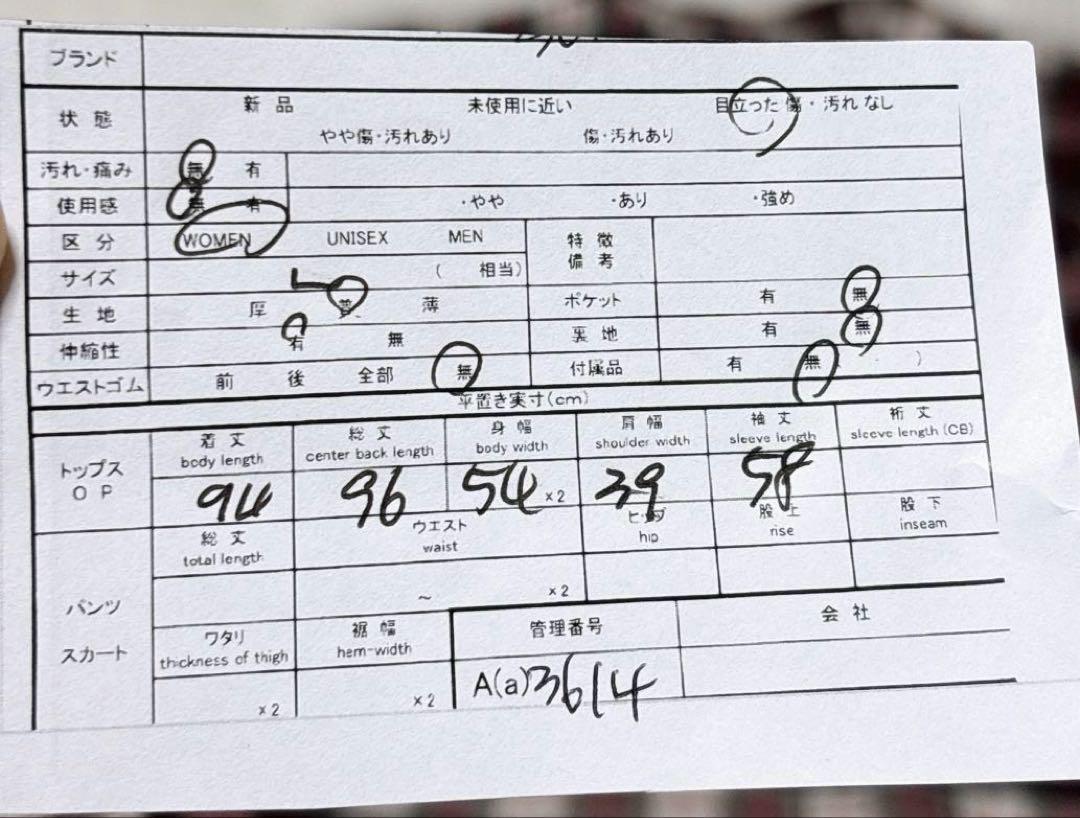 ブランド
状態 新品 未使用に近い 目立った傷・汚れなし
やや傷・汚れあり 傷・汚れあり
汚れ・痛み 無 有
使用感 無 有 ・やや ・あり ・強め
区分 WOMEN UNISEX MEN 特徴
備考
サイズ L ( 相当)
生地 厚 普 薄 ポケット 有 無
伸縮性 有 無 裏地 有 無
ウエストゴム 前 後 全部 無 付属品 有 無 )
平置き実寸(cm)
トップス
OP
着丈 総丈 身幅 肩幅 袖丈 裄丈
body length center back length body width shoulder width sleeve length sleeve length (CB)
94 96 54 ×2 39 58
パンツ
スカート
総丈 ウエスト ヒップ 股上 股下
total length waist hip rise inseam
~ ×2
ワタリ 裾幅 管理番号 会社
thickness of thigh hem-width
×2 ×2 A(a)3614